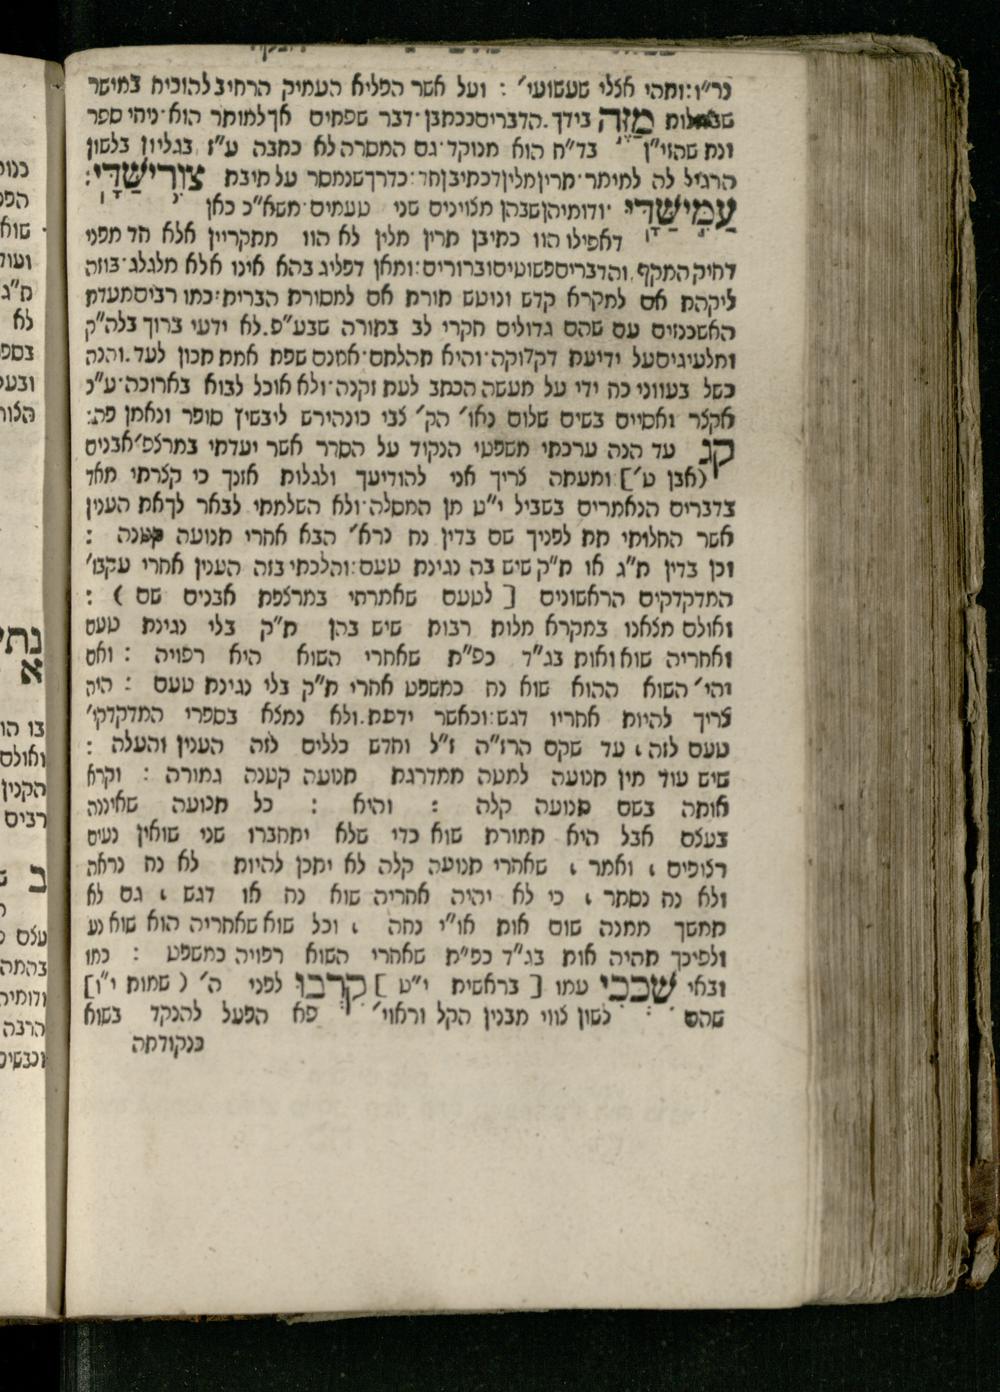 נר״ו: ותהי אצלי שעשועי׳ : ועל אשר הפליא העמיק הרחיב להוכיח במישר
מַזֶּה בידך. הדברים ככתבן דבר שפתים אך למותר הוא· ניחי ספר
ונת שהזי״ן בד״ח הוא מנוקד· גם המסרה לא כתבה ע״ז בגליון בלשון
הרגיל לה למימר· תרין מלין דכתיבן חד: כדרך שנמסר על תיבת צוּרִישַׁדָּי:
עַמִּישַׁדָּי ודומיהן שבהן מצויינים שני טעמים· משא״כ כאן
דאפילו הוו כתיבן תרין מלין לא הוו מתקריין אלא חד מפני
דחיק המקף. והדברים פשוטים וברורים: ומאן דפליג בהא אינו אלא מלגלג· בוזה
ליקהת אם למקרא קדש ונוטש תורת אם למסורת הברית: כמו רבים מעדת
האשכנזים עם שהם גדולים חקרי לב בתורה שבע״פ. לא ידעי ברוך בלה״ק
ומלעיגים על ידיעת דקדוקה· והיא תהלתם· אמנם שפת אמת תכון לעד. והנה
כשל בעווני כח ידי על מעשה הכתב לעת זקנה· ולא אוכל לבוא בארוכה· ע״כ
אקצר ואסיים בשים שלום נאו׳ הק׳ צבי כונהירש ליבשיץ סופר ונאמן פה:
קג עד הנה ערכתי משפטי הנקוד על הסדר אשר יעדתי במרצפ׳ אבנים
(אבן ט׳]: ומעתה צריך אני להודיעך ולגלות אזנך כי קצרתי מאד
בדברים הנאמרים בשביל י״ט מן המסלה· ולא השלמתי לבאר לך את הענין
אשר החלותי תת לפניך שם בדין נח נרא׳ הבא אחרי תנועה קטנה :
וכן בדין ת״ג או ת״ק שיש בה נגינת טעם: והלכתי בזה הענין אחרי עקבו׳
המדקדקים הראשונים [ לטעם שאמרתי במרצפת אבנים שם ) :
ואולם מצאנו במקרא מלות רבות שיש בהן ת״ק בלי נגינת טעם
ואחריה שוא ואות בג״ד כפ״ת שאחרי השוא היא רפויה : ואם
יהי׳ השוא ההוא שוא נח כמשפט אחרי ת״ק בלי נגינת טעם : היה
צריך להיות אחריו דגש: וכאשר ידעת. ולא נמצא בספרי המדקדקי׳
טעם לזה, עד שקם הרז״ה ז״ל וחדש כללים לזה הענין והעלה :
שיש עוד מין תנועה למטה ממדרגת תנועה קטנה גמורה : וקרא
אותה בשם תנועה קלה : והיא : כל תנועה שאיננה
בעצם אבל היא תמורת שוא כדי שלא יתחברו שני שואין נעים
רצופים, ואמר, שאחרי תנועה קלה לא יתכן להיות לא נח נראה
ולא נח נסתר, כי לא יהיה אחריה שוא נח או דגש, גם לא
תמשך ממנה שום אות או״י נחה, וכל שוא שאחריה הוא שוא נע
ולפיכך תהיה אות בג״ד כפ״ת שאחרי השוא רפויה כמשפט : כמו
ובאי שִׁכְבִי עמו [ בראשית י״ט ] קִרְבוּ לפני ה׳ ( שמות י״ו]
שהם לשון צווי מבנין הקל וראוי׳ פא הפעל להנקד בשוא
כנקודתה